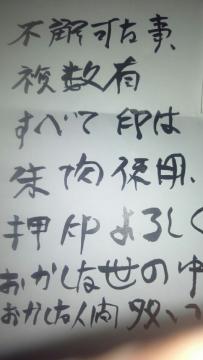 不解可右事、
複数有
すべて印は
朱肉使用、
押印よろしく
おかしな世の中
おかしな人間多いつ